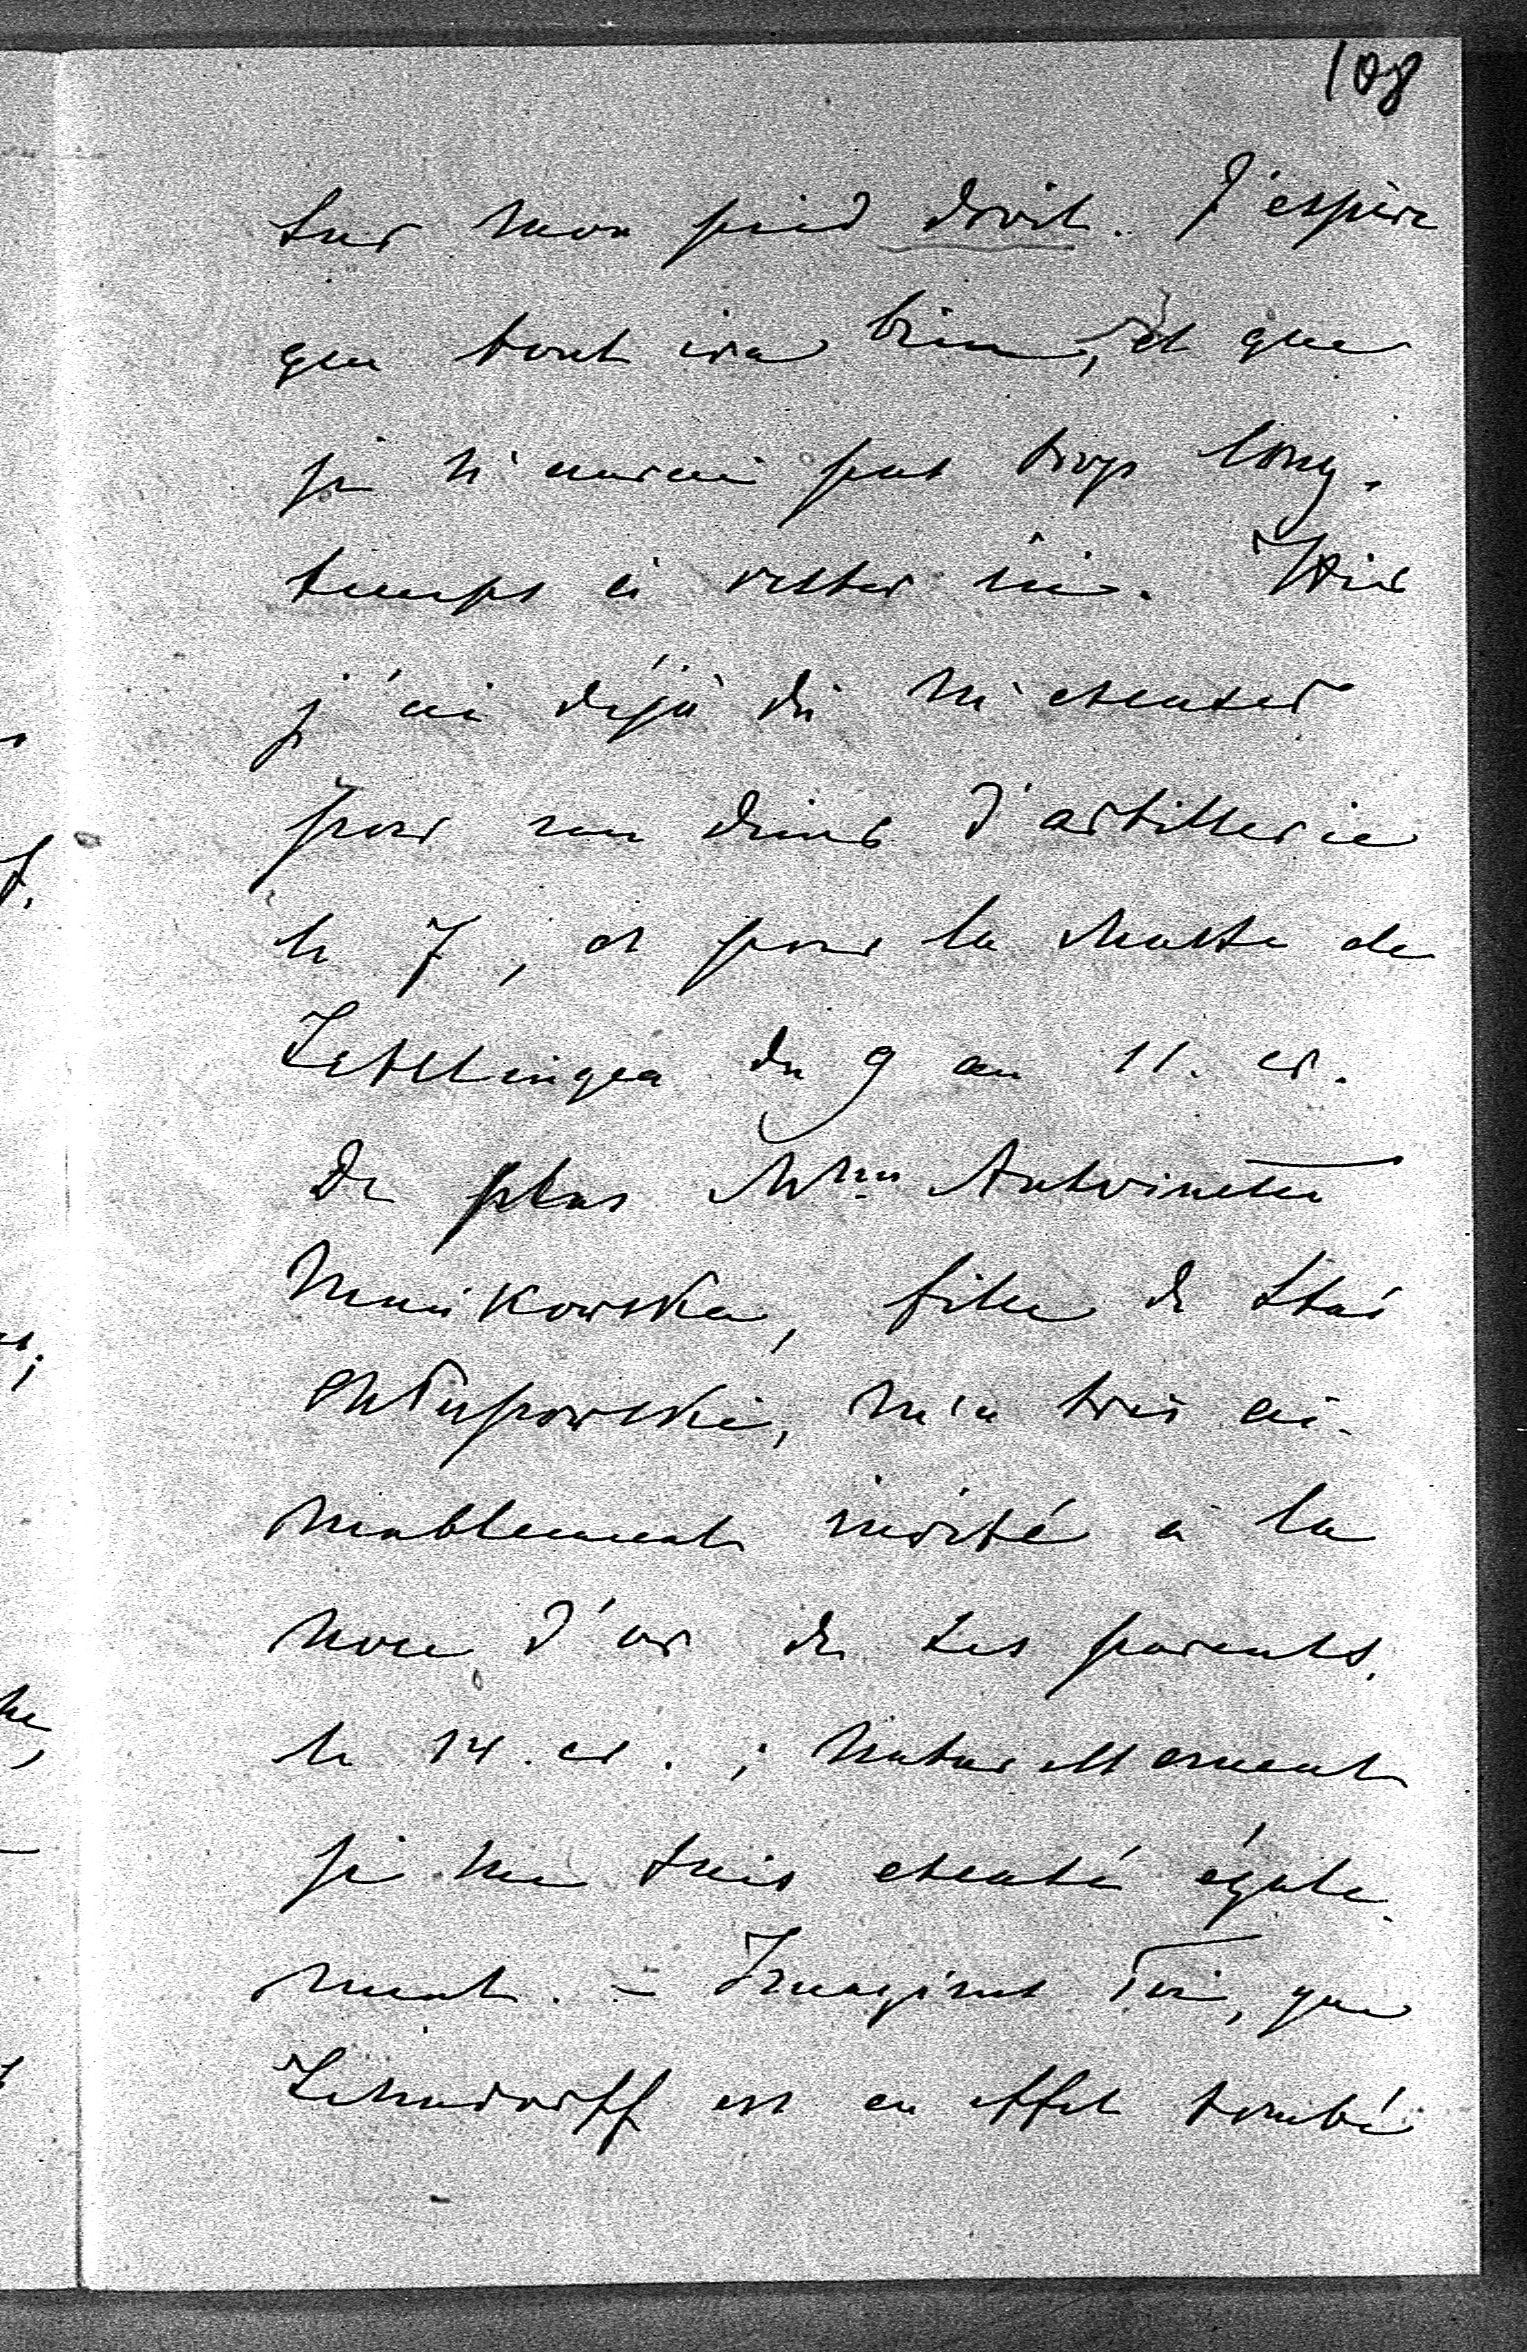 108
sur mon pied droit. J'espère
que tout ira bien, et que
je n'aurai pas trop long-
temps à rester ici. Hier
j'ai déjà dû m'excuser
pour un dîner d'artillerie
le 7, et pour la chasse de
Letzlingen du 9 au 11. cr.
De plus Mme Antoinette
Mańkowska, fille de Staś
Chłapowski, m'a très ai-
mablement invité à la
noce d'or de ses parents,
le 14. cr.; naturellement
je me suis excusé égale-
ment. – Imagines Toi, que
Lehndorff est en effet tombé